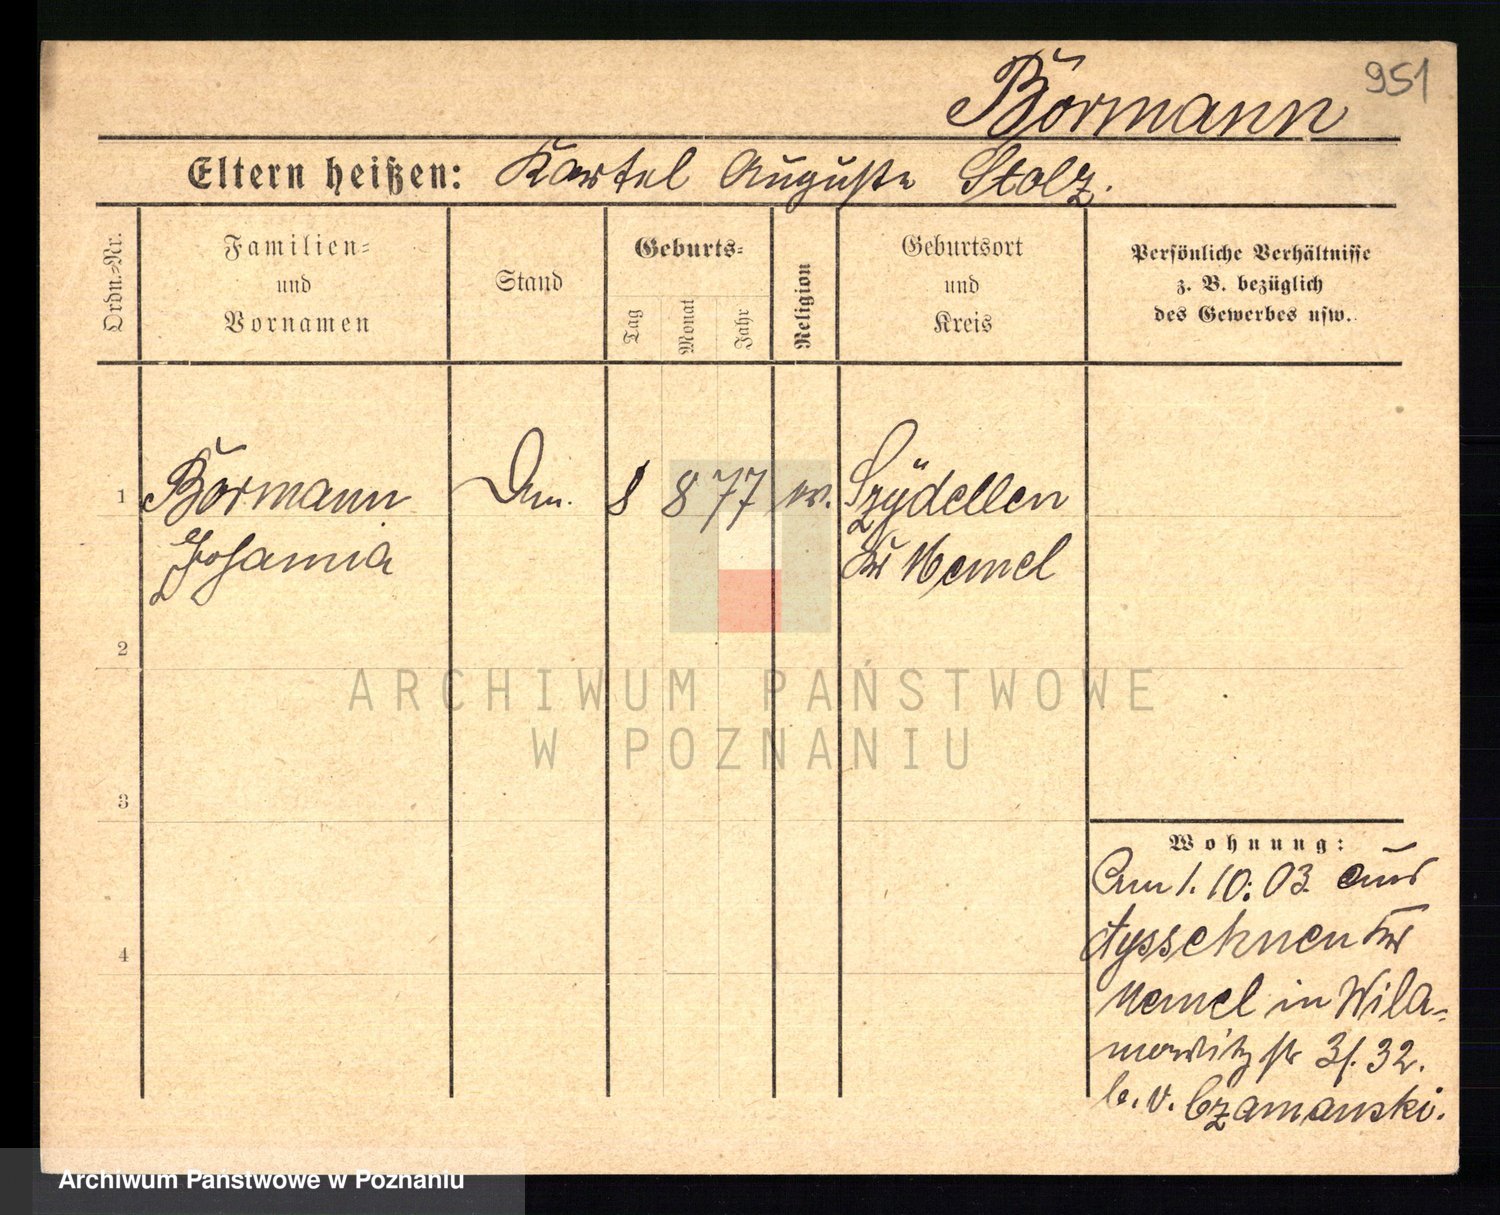 951
Börmann
Eltern heißen: Kartel Auguste Stolz.
Ordn.-Nr.
Familien-
und
Vornamen
Stand
Geburts-
Tag
Monat
Jahr
Religion
Geburtsort
und
Kreis
Persönliche Verhältnisse
z. B. bezüglich
des Gewerbes usw.
1 Börmann 8 8 77 ev. Szydellen
Johanna Kr Memel
2
ARCHIWUM PAŃSTWOWE
W POZNANIU
3
Wohnung:
Am 1. 10. 03. aus
Kr
4
Memel in Wila-
mowitz str 3/. 32.
b. v. Czamanski.
Archiwum Państwowe w Poznaniu